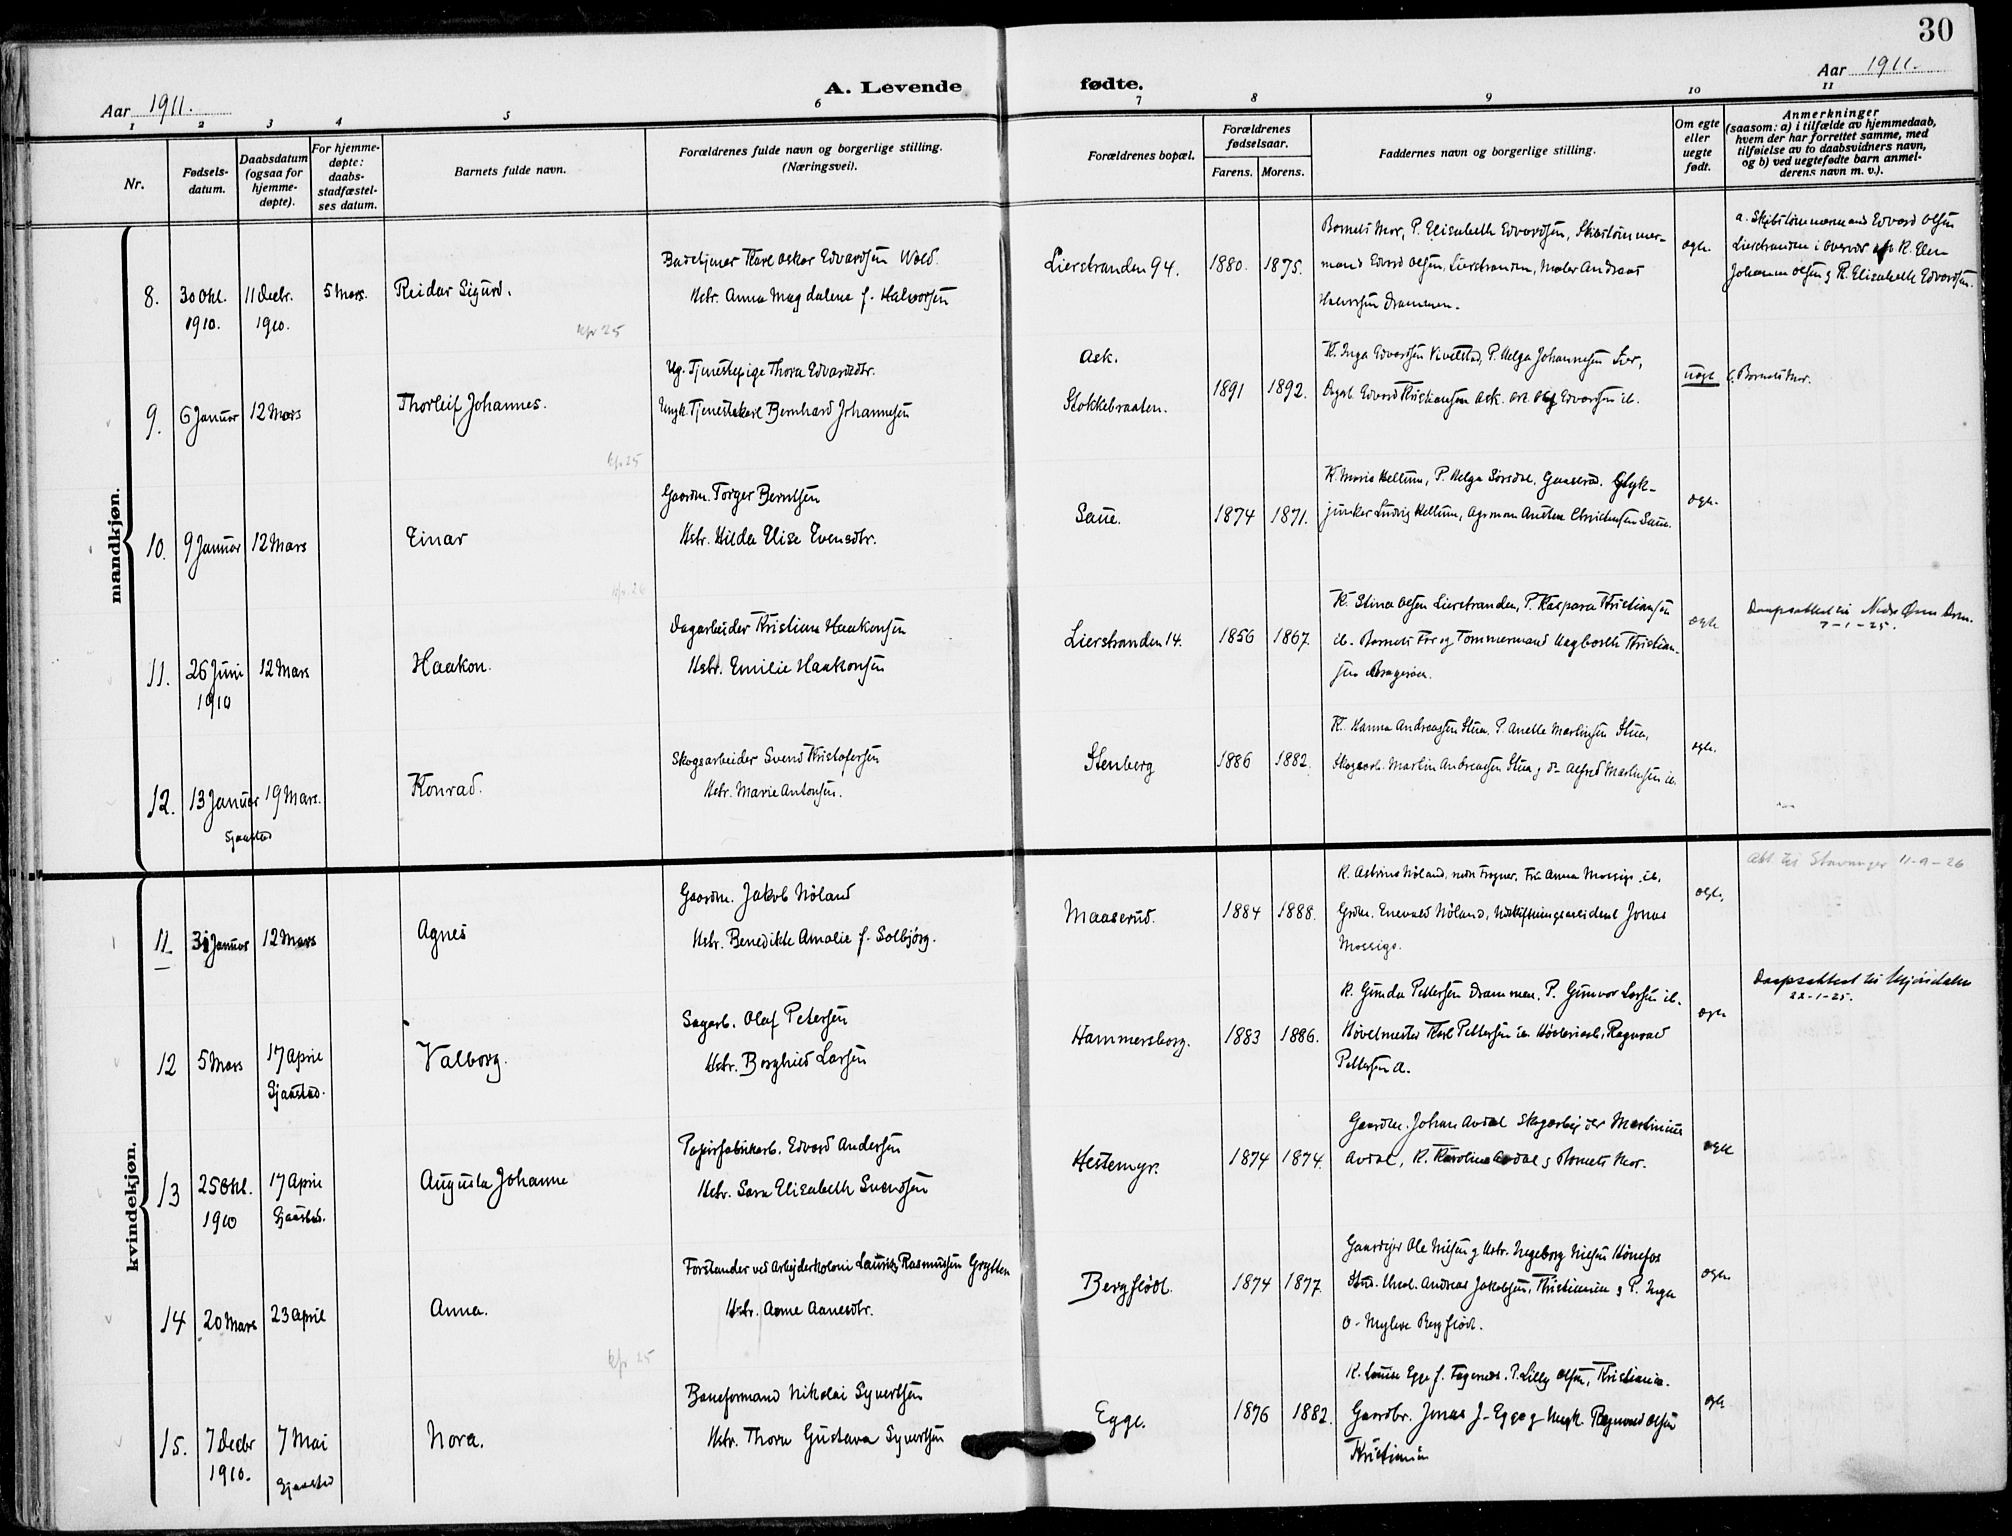 30
Aar 1911.
A. Levende fødte.
Aar 1911.
1 2 3 4 5 6 7 8 9 10 11
Nr.
Fødsels-
datum.
Daabsdatum
(ogsaa for
hjemme-
døpte).
For hjemme-
døpte:
daabs-
stadfæstel-
ses datum.
Barnets fulde navn.
Forældrenes fulde navn og borgerlige stilling.
(Næringsvei).
Forældrenes bopæl.
Forældrenes
fødselsaar.
Farens. Morens.
Faddernes navn og borgerlige stilling.
Om egte
eller
uegte
født.
Anmerkninger
(saasom: a) i tilfælde av hjemmedaab,
hvem der har forrettet samme, med
tilføielse av to daabsvidners navn,
og b) ved uegtefødte barn anmel-
derens navn m. v.).
mandkjøn.
8.
30 Okt.
1910.
11 Decbr.
1910.
5 Mars.
Reidar Sigurd.
kfr 25
Karl Oskar Edvardsen Wold.
Hstr. Anna Magdalena f. Halvorsen
Lierstranden 94.
1880. 1875.
Barnets Mor, P. Elisabeth Edvardsen, Skibstømmer-
mand Edvard Olsen, Lierstranden, Maler Andreas
Halvorsen Drammen.
egte
a. Skibstømmermand Edvard Olsen
Lierstranden i overvær af K. Elen
Johanne Olsen & P. Elisabeth Edvardsen.
9.
6 Januar
12 Mars
Thorleif Johannes.
kfr 25
Ug. Tjenestepige Thora Edvardsdtr.
Ungk. Tjenestekarl Bernhard Johannesen
Ask.
Stokkebraaten.
1891 1892.
K. Inga Edvardsen Kvelstad, P. Helga Johannesen Lier,
Dagarb. Edvard Kristiansen Ask. Edvardsen ib.
uegte
b. Barnets Mor.
10.
9 Januar
12 Mars
Einar
kfr. 26
Gaardm. Torger Berntsen
Hstr. Hilda Elise Evensdtr.
Saue.
1874 1871.
K. Maria Hellum, P. Helga Sørsdal, Gaaserud.
Ludvig Hellum, Christensen Saue.
egte.
11.
26 Juni
1910
12 Mars
Haakon.
Dagarbeider Kristian Haakonsen
Hstr. Emilie Haakonsen
Lierstranden 14.
1856 1867.
K. Stina Olsen Lierstranden, P. Kaspara Kristiansen
ib. Barnets Far og Tømmermand Kristian-
sen Bragerøen.
egte
Daapsattest til Nedre Øren Drm.
7-1-25.
12.
13 Januar
19 Mars.
Sjaastad
Konrad.
Skogsarbeider Svend Kristofersen
Hstr. Marie Antonsen.
Stenberg
1886 1882.
K. Hanna Andreassen Stua. P. Anette Martinsen Stua,
Skogsarb. Martin Andreassen Stua & do Alfred Martinsen ib.
egte.
kvindekjøn.
11
31 Januar
12 Mars
Agnes
Gaardm. Jakob Høland
Hstr. Benedikte Amalie f. Solbjørg.
Maaserud.
1884 1888.
K. Høland, nedre Frogner, Fru Anna Mossige ib.
Grdm. Enevald Høland, Udskiftningsassistent Jonas
Mossige.
egte.
Att til Stavanger 11-9-26
12
5 Mars
17 April
Sjaastad.
Valborg.
Sagarb. Olaf Petersen
Hstr. Borghild Larsen
Hammersborg.
1883 1886.
K. Gunda Pettersen Drammen, P. Gunvor Larsen ib.
Høvelmester Karl Pettersen ib. Ragnvald
Pettersen
egte
Daapsattest til Mjøndalen
22-1-25.
13
25 Okt.
1910
17 April
Sjaastad.
Augusta Johanne
Papirfabrikarb. Edvard Andersen
Hstr. Sara Elisabeth Svendsen
Hestemyr.
1874 1874.
Gaardm. Johan Avdal Skogarbeider Martinius
Avdal, K. Karoline Avdal & Barnets Mor.
egte
14
20 Mars
23 April
Anna.
kfr 25
Forstander ved Arbeiderkoloni Lauritz Rasmussen Grytten
Hstr. Anne Aanesdtr.
Bergflødt.
1874 1877.
Gaardeier Ole Nilsen & Hstr. Ingeborg Nielsen Hønefos
Stud. Andreas Jakobsen, Kristiania & P. Inga
O. Myhre Bergflødt.
egte
15.
7 Decbr
1910.
7 Mai
Sjaastad
Nora.
Baneformand Nikolai Syvertsen
Hstr. Thora Gustava Syvertsen
Egge.
1876 1882.
K. Louise Egge f. Fagernes. P. Lilly Olsen, Kristiania.
Gaardbr. Jonas J. Egge & Ungk. Ragnvald Olsen
Kristiania
egte